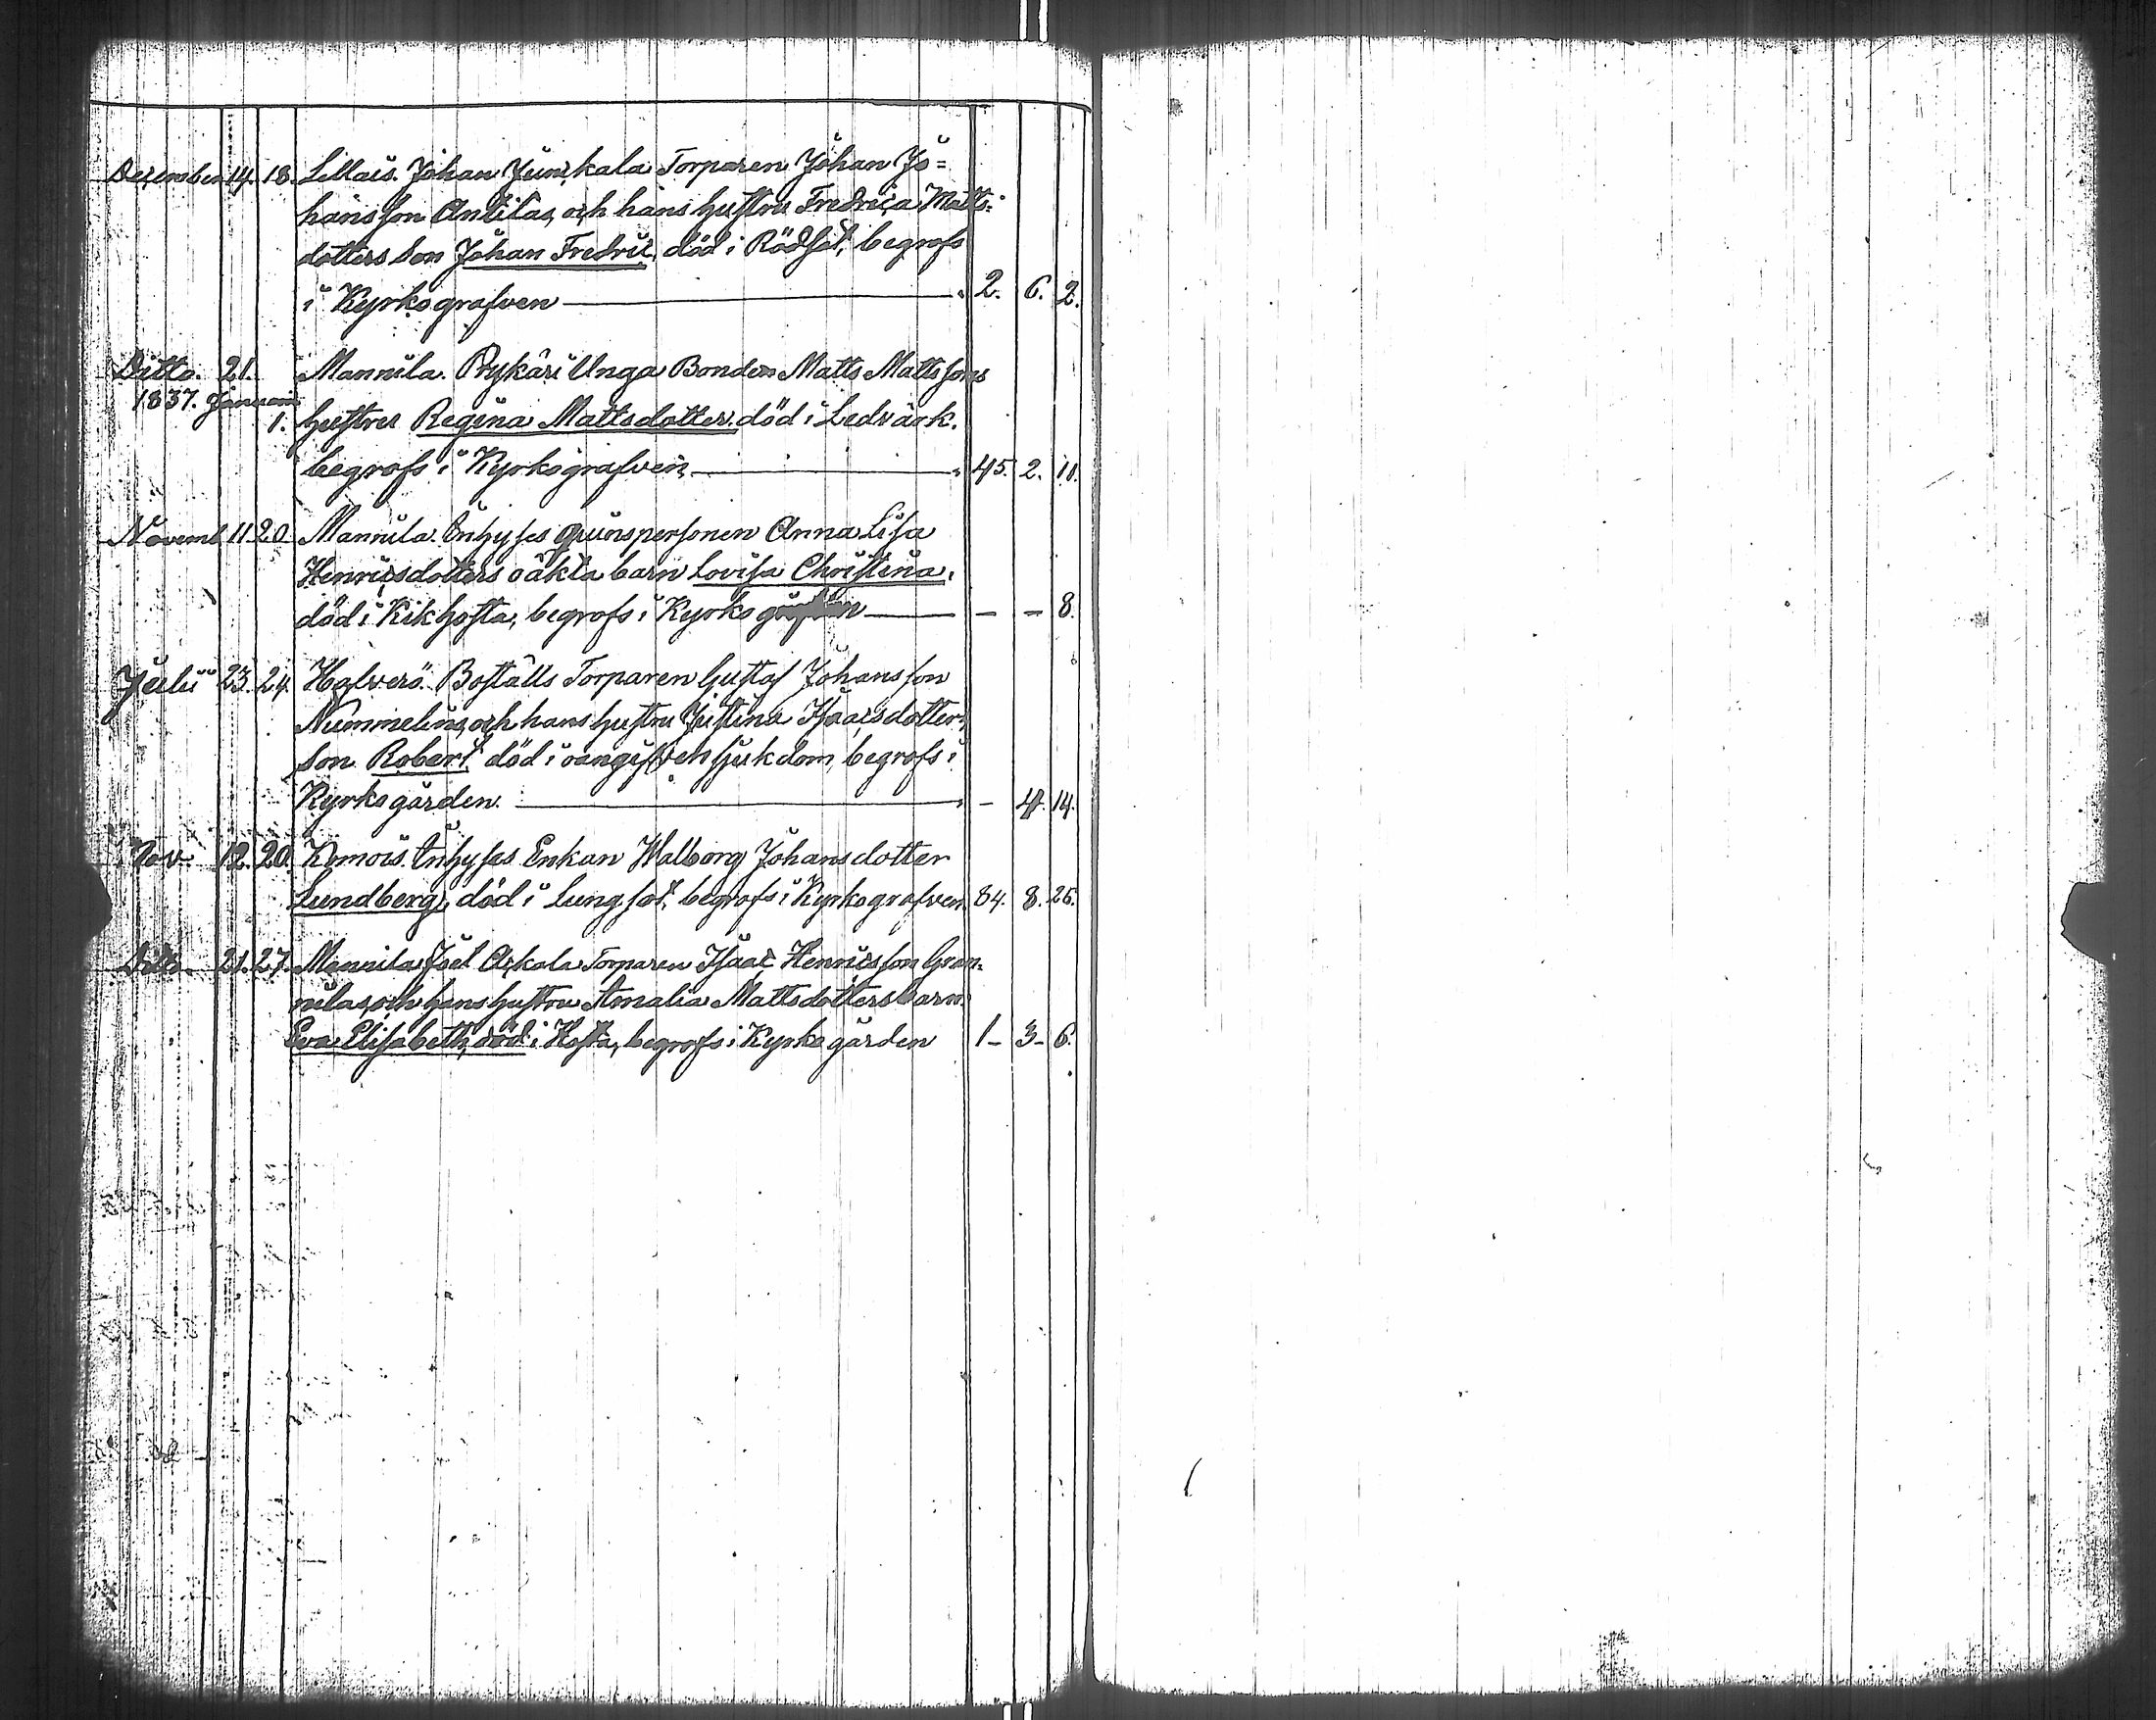 December 14. 18. Lillais. Johan Junikala Torparen Johan Jo=
hansson Antilas, och hans hustru Fredrica Matts-
dotters Son Johan Fredric, död i Rödsot, begrofs
i Kyrkografven 2. 6. 2.
Ditto. 21. Mannila. Prykäri Unga Bonden Matts Mattssons
1837. Januarii
1. hustru Regina Mattsdotter. död i Ledvärk.
begrofs i Kyrkografven 45. 2. 11.
Novemb 11 20. Mannila. Inhyses Qvinspersonen Anna Lisa
Henricsdotters oäkta barn Lovisa Christina,
död i Kikhosta, begrofs i Kyrko — — 8.
Julii 23. 24. Hafverö. Boställs Torparen Gustaf Johansson
Nummelins, och hans hustru Justina Isaacsdotters
son Robert död i oangifven sjukdom, begrofs i
Kyrkogården. - 4. 14.
Nov. 12. 20. Komois. Inhyses Enkan Walborg Johansdotter
Lundberg, död i Lungsot, begrofs i Kyrkografven. 84. 8. 26.
Ditto. 21. 27. Mannila Joel Arkala Torparen Isaac Henricsson Gran-
nilas, och hans hustru Amalia Mattsdotters barn
Eva Elisabeth, död i Hosta, begrofs i Kyrkogården 1- 3- 6.